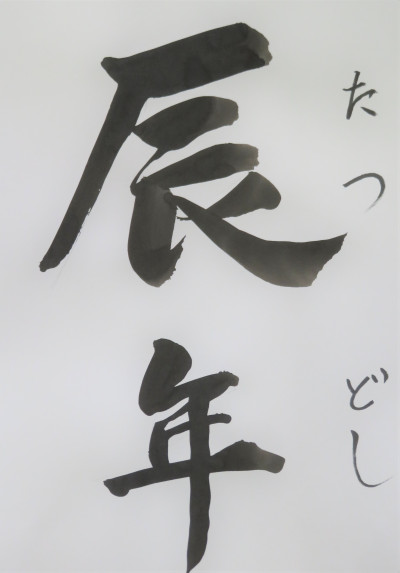 辰年
たつどし